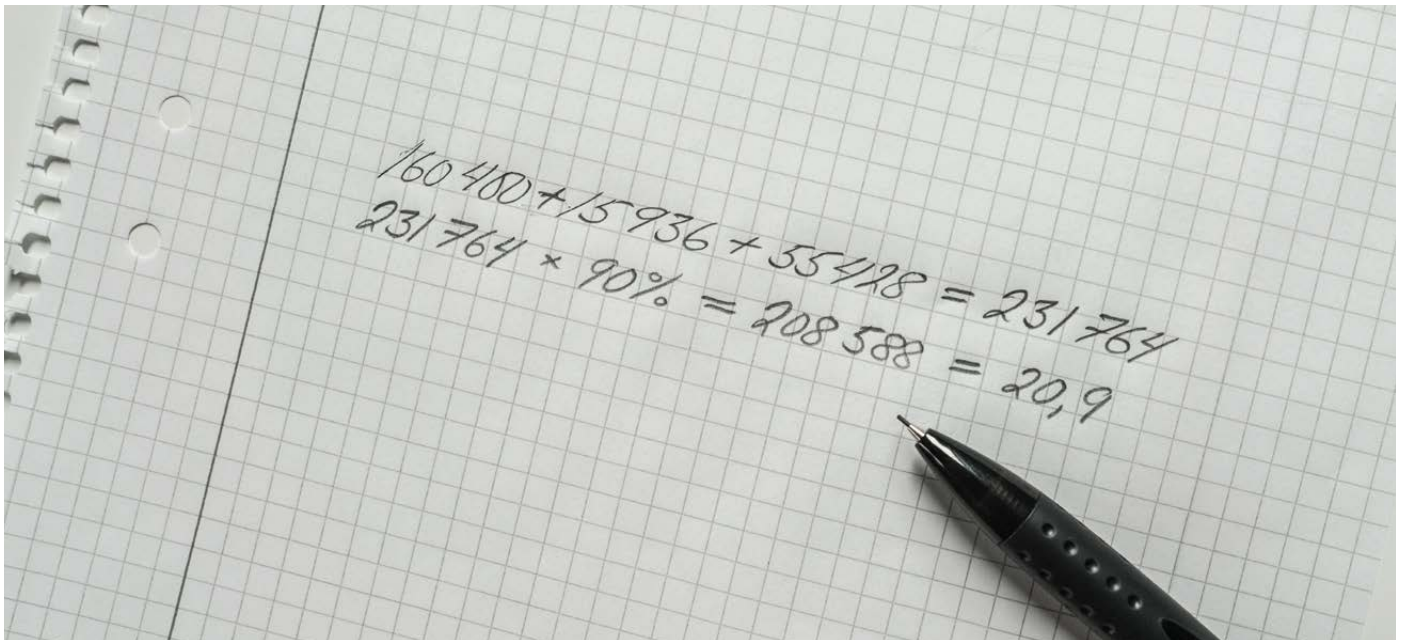 160 400 + 15 936 + 55 428 = 231 764
231 764 × 90% = 208 588 = 20,9